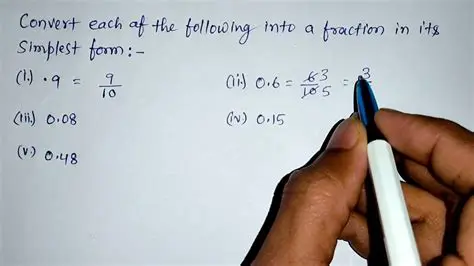 Convert each of the following into a fraction in its
Simplest form:-
(i.) .9 = 9/10 (ii.) 0.6 = 6/10 3/5 = 3
(iii.) 0.08 (iv.) 0.15
(v.) 0.48